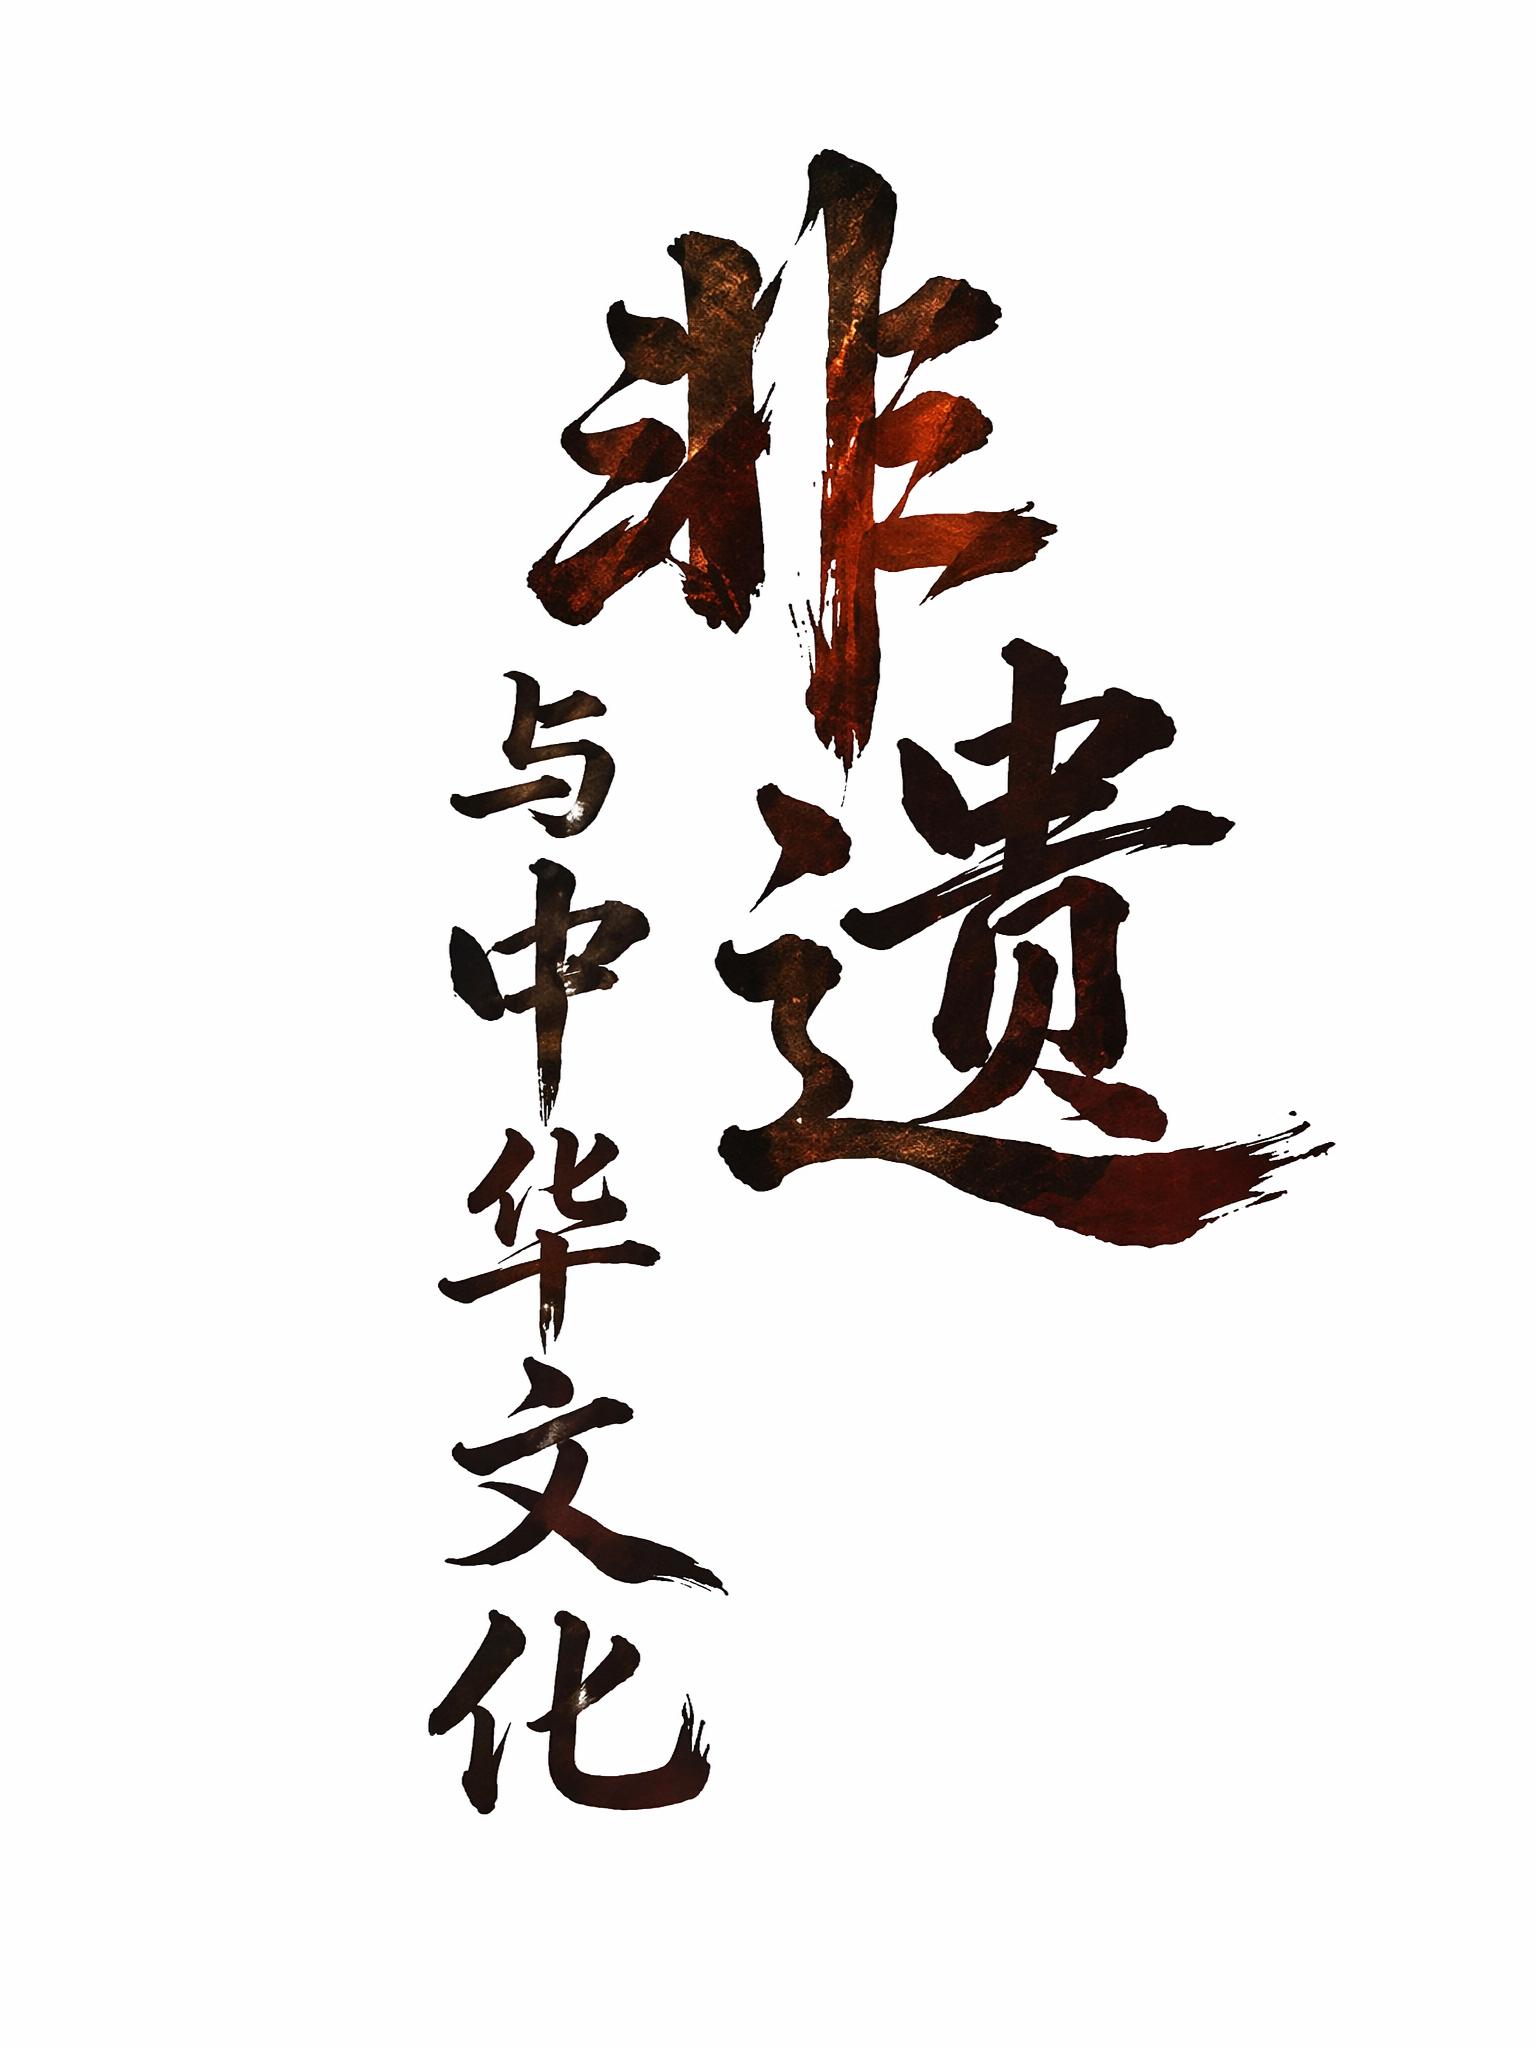 非遗
与中华文化